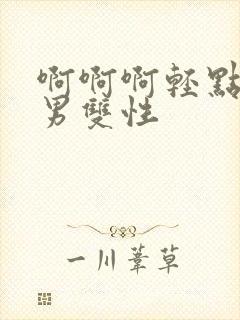 啊啊啊轻點
男雙性
一川葦草